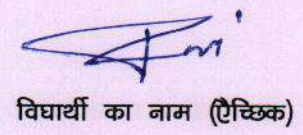 विघार्थी का नाम (ऐच्छिक)